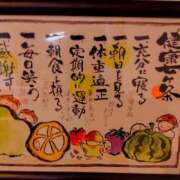 健康七ヶ条
一 六分に寝る
一 朝日を見る
一 体重適正
一 定期的に運動
一 朝食を摂る
一 毎日笑う
一 感謝す